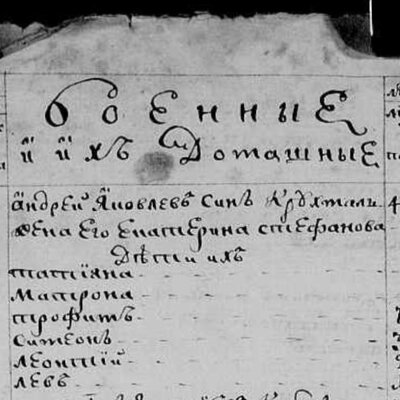 военныЕ
й йхъ Доmашныѣ
андреи Яковлевъ Синъ Крухталь 4
жена Его Екатерина стефанова
Дѣти ихъ
татіяна
матрона
трофимъ
симеонъ
леонтій
левъ